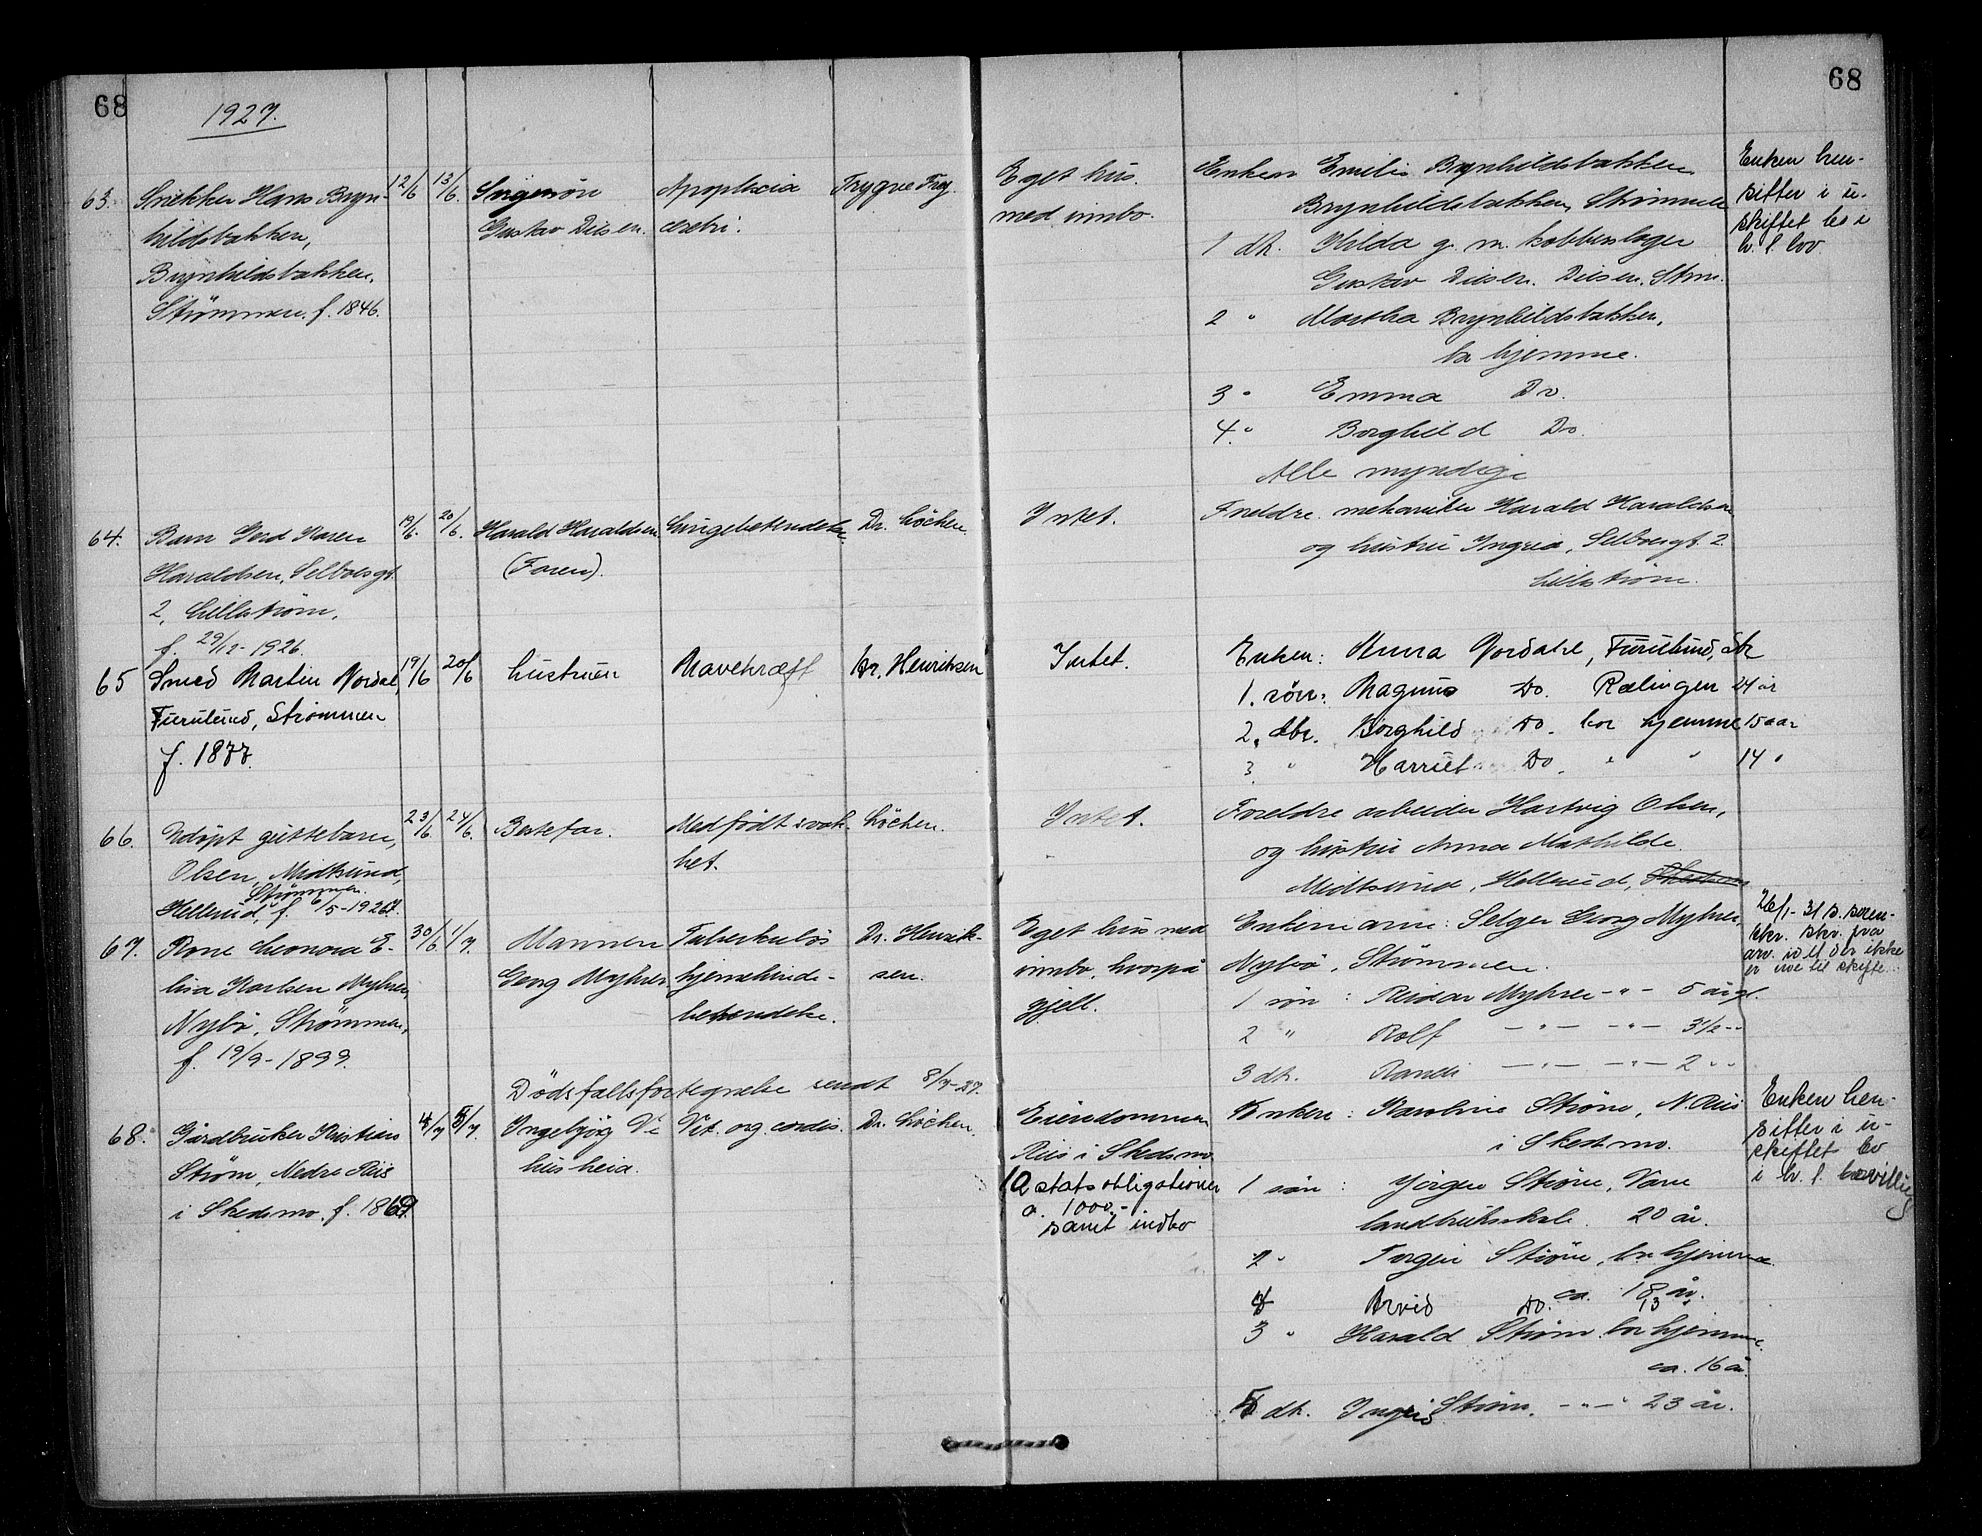 68
1927.
68
63.
Snekker Hans Bryn-
hildsbakken,
Brynhildsbakken,
Strømmen. f. 1846.
12/6
13/6.
Svigersøn
Gustav Diesen.
Apoplexia
cerebri.
Trygve Frøy.
Eget hus.
med innbo.
Enken Emilie Brynhildsbakken
Brynhildsbakken, Strømmen
1 dtr. Hilda g. m. kobberslager
Gustav Diesen. Diesen. Strm.
2 " Martha Brynhildsbakken,
bor hjemme.
3 " Emma Do.
4. " Borghild Do.
Alle myndige
Enken hen-
sitter i u-
skiftet bo i
h. t. lov.
64.
Barn Gerd Karen
Haraldsen, Selboesgt.
2, Lillestrøm.
f. 29/12-1926.
19/6.
20/6.
Harald Haraldsen
(Faren).
Lungebetendelse.
Dr. Løchen.
Intet.
Foreldre. mekaniker Harald Haraldsen
og hustru Ingrid, Selboesgt. 2.
Lillestrøm.
65
Smed Martin Nordal,
Furulund, Strømmen
f. 1877.
19/6
20/6
hustruen
Mavekræft
Dr. Henriksen
Intet.
Enken: Anna Nordahl, Furulund, Str
1. søn: Magnus Do. Rælingen 24 år
2. dtr. Borghild Do. bor hjemme 15 aar
3 " Harriet Do. " " 14 "
66.
Udøpt guttebarn,
Olsen, Midtsund,
Strømmen.
Hellerud, f. 6/5-1927.
23/6
24/6.
Bestefar.
Medfødt svak-
het.
Løchen.
Intet.
Foreldre arbeider Hartvig Olsen,
og hustru Anna Mathilde.
Midtsund, Hellerud,
67.
Kone Leonora E-
lisa Karlsen Myhrer,
Nybø, Strømmen,
f. 19/9-1899.
30/6
1/7.
Mannen
Georg Myhrer
Tuberkuløs
hjernehinde-
betendelse.
Dr. Henrik-
sen.
Eget hus med
innbo, hvorpå
gjell.
Enkemann: Selger Georg Myhrer,
Nybø, Strømmen.
1 søn : Reidar Myhrer - " - 5 år gl.
2 " Rolf - " - - " - 3 1/2 - "
3 dtr. Randi - " - - " - 2 - "
26/1- 31 s. soren-
skr. skr. fra
arv. idet der ikke
er noe til skifte.
Dødsfallsfortegnelse sendt 8/7-27.
68.
Gårdbruker Kristian
Strøm, Nedre Riis
i Skedsmo. f. 1869.
4/7
5/7.
Ingebjørg
husheia.
Vit. org. cordis.
Dr. Løchen.
Eiendommen
Riis i Skedsmo.
10 statsobligationer
a. 1000.-
samt indbo
Enken : Karoline Strøm, N. Riis
i Skedsmo.
1 søn : Jørgen Strøm, Vane
landbruksskole. 20 år.
2 " Torgeir Strøm, bor hjemme.
ca. 18 år.
4 Arvid Do. 13 "
3 " Harald Strøm bor hjemme.
ca. 16 år.
5 dtr. Ingrid Strøm. - " - " 23 år.
Enken hen-
sitter i u-
skiftet bo
i h. t. bevilling